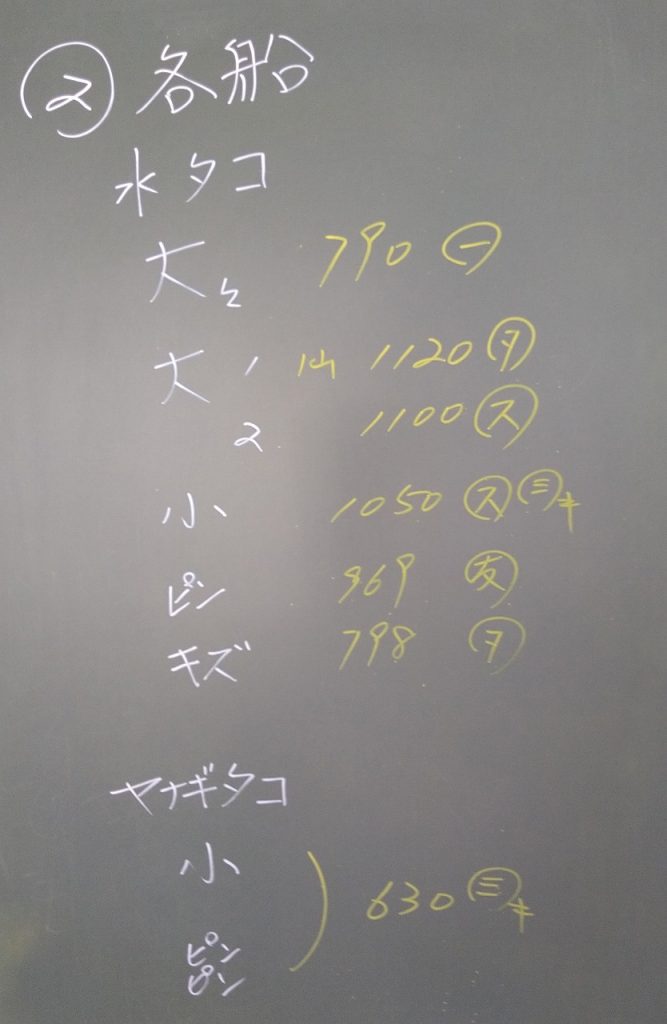 ② 各船
水タコ
大々 790 ㊀
大 1 1120 ㋟
2 1100 ㋜
小 1050 ㋜ ㊂キ
ピン 969 友
キズ 798 ㋾
ヤナギタコ
小
630 ㊂キ
ピン
ピン